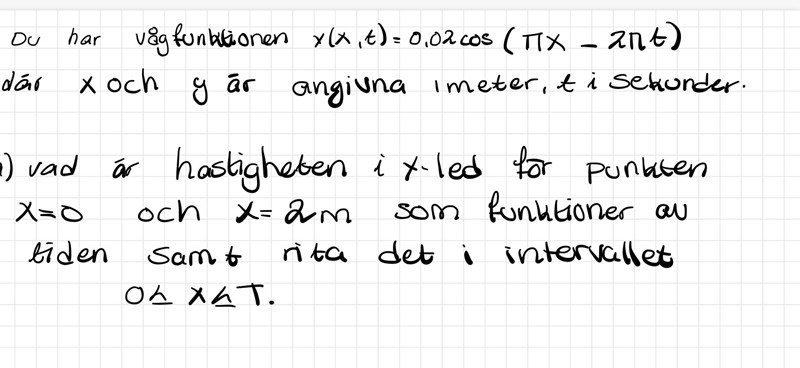 Du har vågfunktionen y(x,t) = 0,02 cos (πx - 2πt)
där x och y är angivna i meter, t i sekunder.
) vad är hastigheten i y-led för punkten
x=0 och x=2m som funktioner av
tiden samt rita det i intervallet
0≤ x≤T.